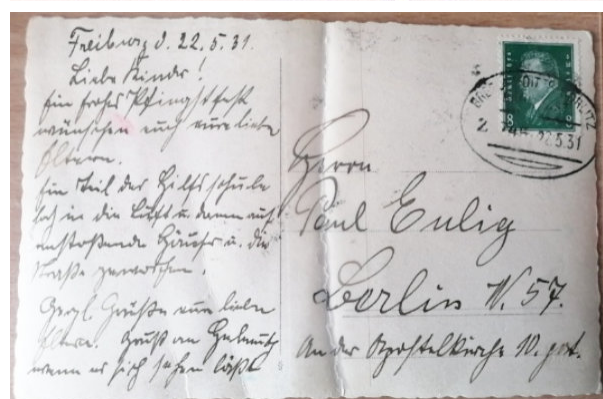 Freiburg d. 22.5.31.
Liebe Kinder!
Ein frohes Pfingstfest
wünschen euch eure lieben
Eltern.
Ein Teil der Hilfsschule
in die Luft u. dann auf
anstoßende Häuser u. die
Straße geworfen.
Herzl. Grüße eure lieben
Eltern. Gruß an Helmuth
wenn er sich sehen läßt
8 8
22.5.31
Herrn
Paul Eulig
Berlin W. 57.
An der Apostelkirche 10. part.